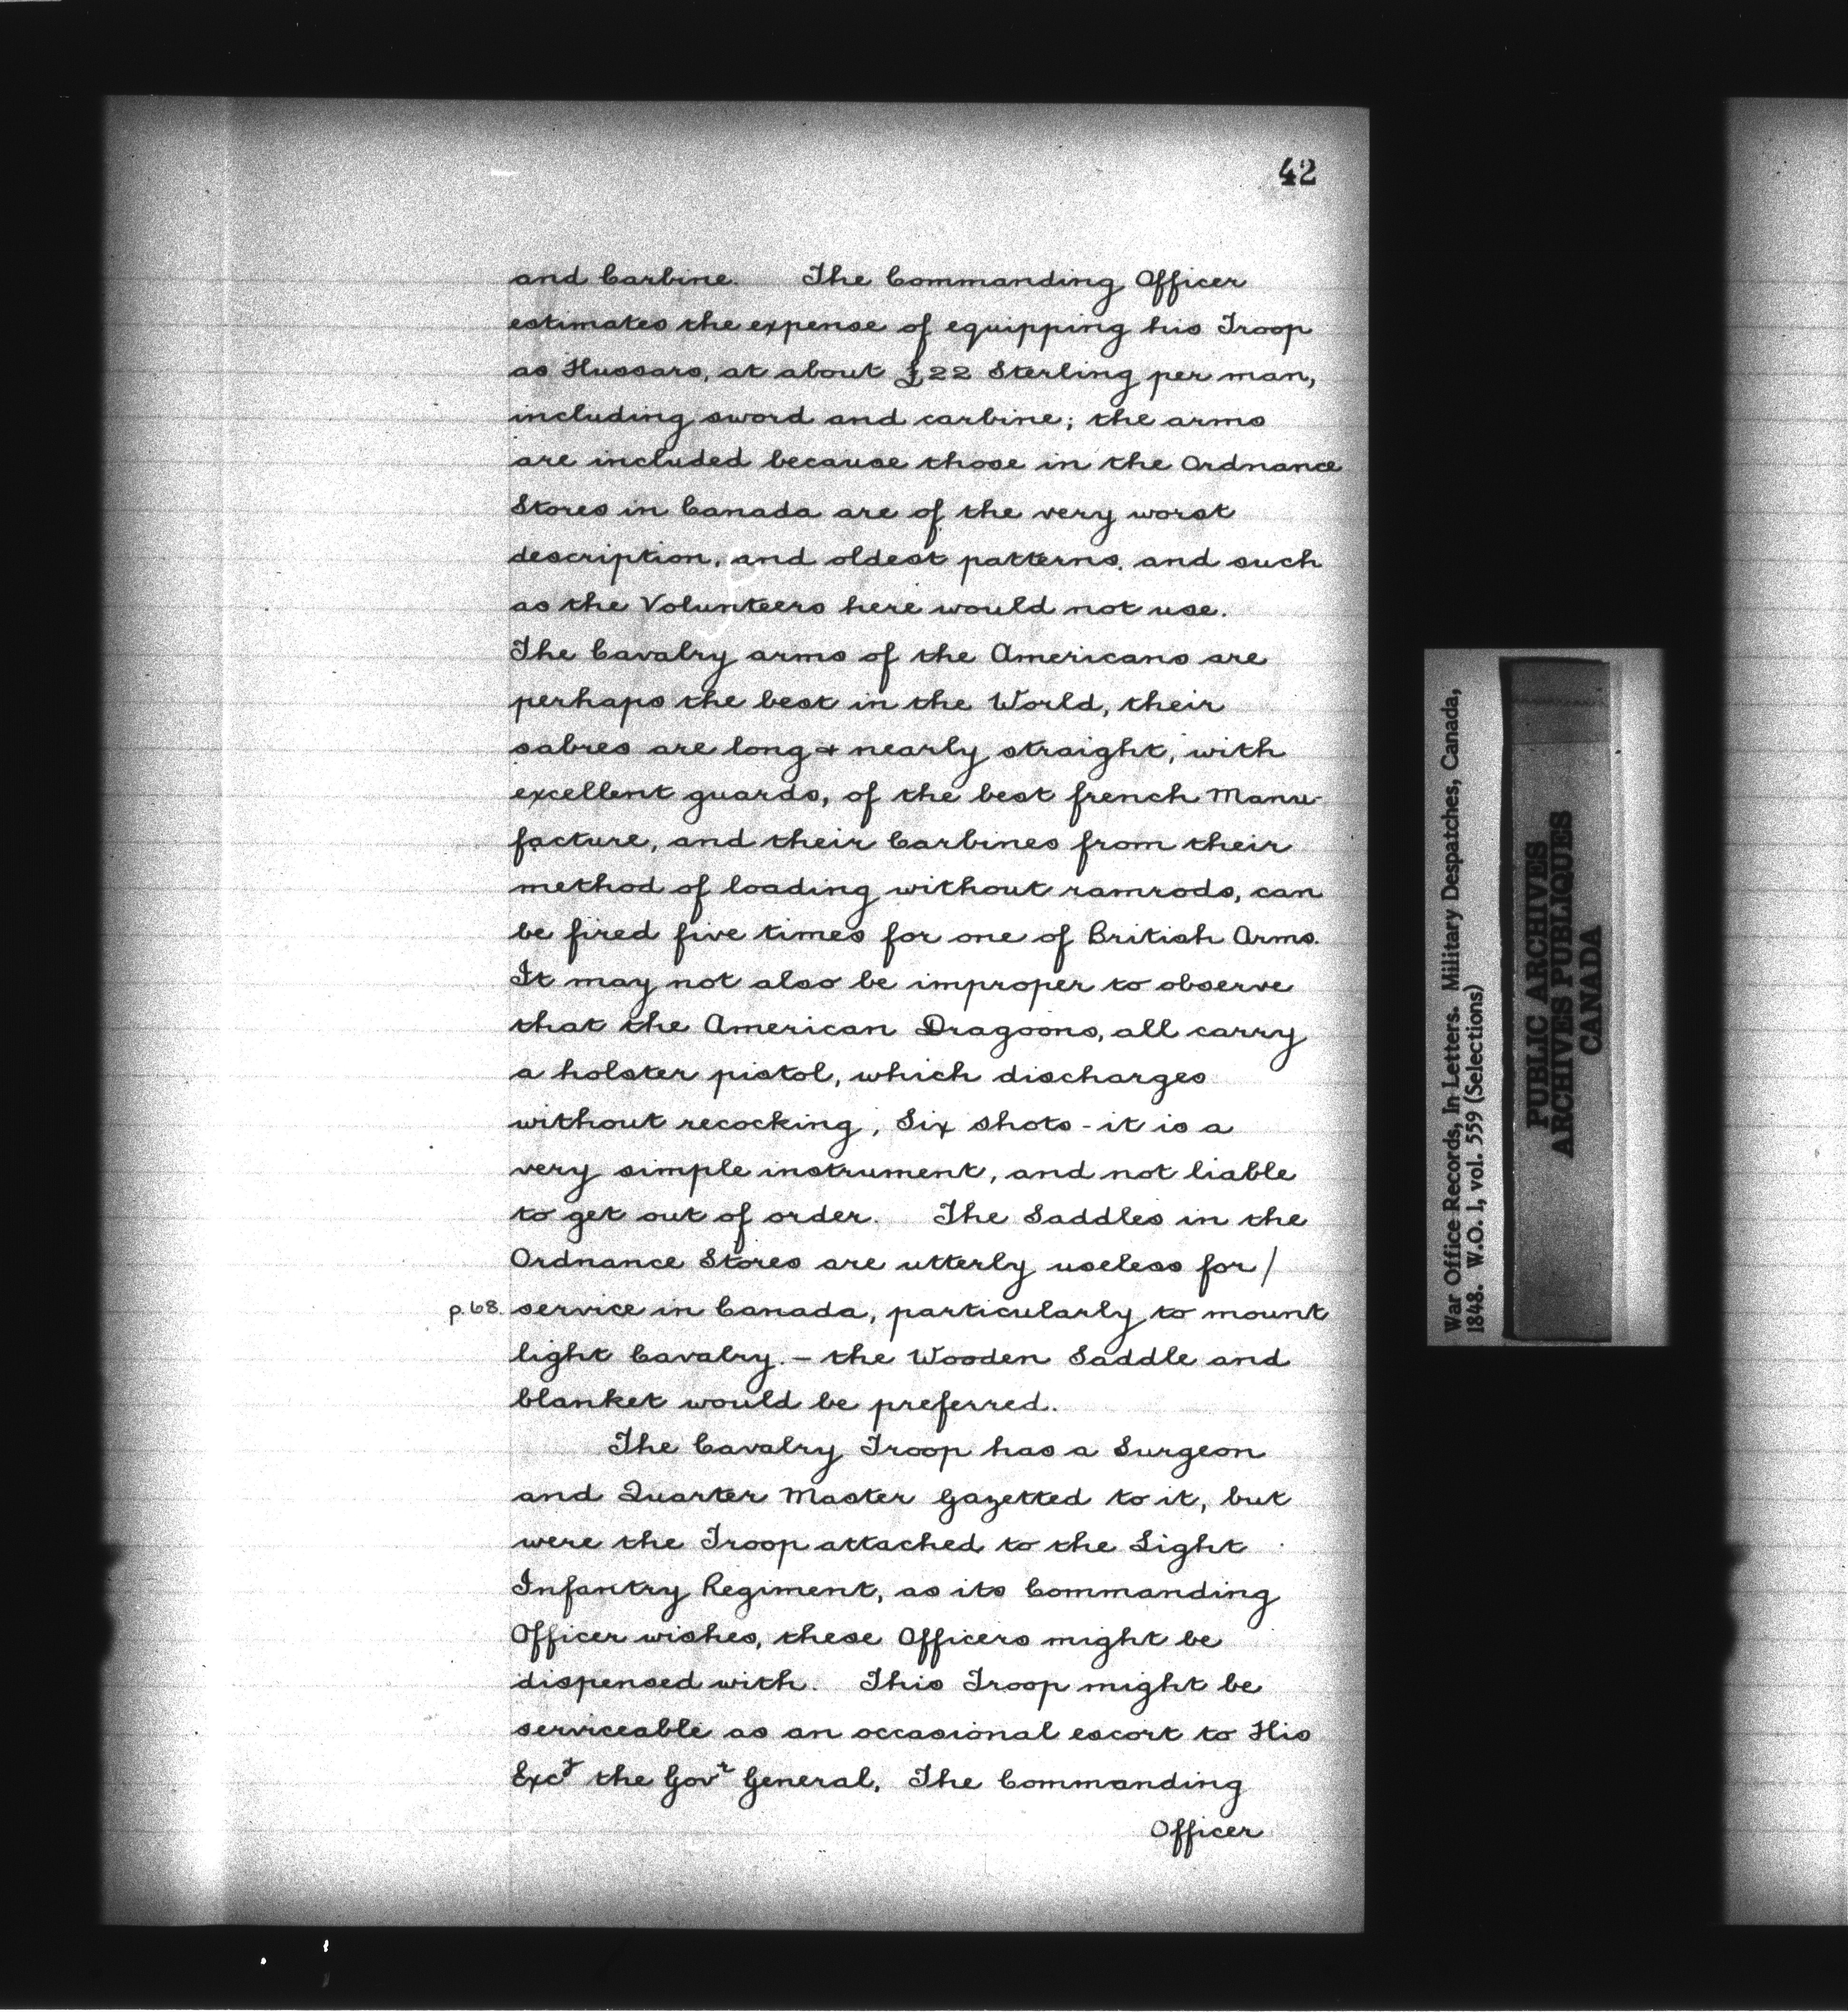 42
and Carbine. The Commanding Officer
estimates the expense of equipping his Troop
as Hussars, at about £22 Sterling per man,
including sword and carbine; the arms
are included because those in the Ordnance
Stores in Canada are of the very worst
description, and oldest patterns, and such
as the Volunteers here would not use.
The Cavalry arms of the Americans are
perhaps the best in the World, their
sabres are long & nearly straight, with
excellent guards, of the best french Manu-
facture, and their Carbines from their
method of loading without ramrods, can
be fired five times for one of British Arms.
It may not also be improper to observe
that the American Dragoons, all carry
a holster pistol, which discharges
without recocking, Six shots - it is a
very simple instrument, and not liable
to get out of order. The Saddles in the
Ordnance Stores are utterly useless for /
p.68. service in Canada, particularly to mount
light Cavalry. - the Wooden Saddle and
blanket would be preferred.
The Cavalry Troop has a Surgeon
and Quarter Master Gazetted to it, but
were the Troop attached to the Light
Infantry Regiment, as its Commanding
Officer wishes, these Officers might be
dispensed with. This Troop might be
serviceable as an occasional escort to His
Excy the Govr General, The Commanding
Officer
War Office Records, In Letters. Military Despatches, Canada,
1848. W.O. 1, vol. 559 (Selections)
PUBLIC ARCHIVES
ARCHIVES PUBLIQUES
CANADA